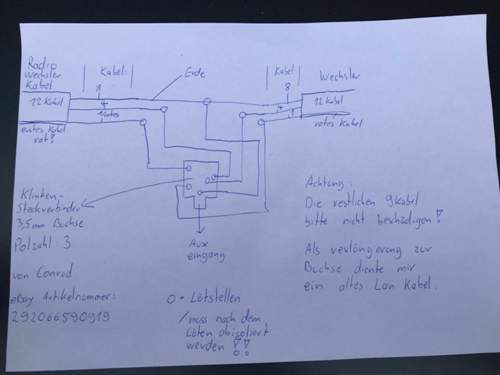 Radio
wechsler
Kabel
Kabel:
Ende
Kabel
Wechsler
8
8
12 Kabel
4
4
12 Kabel
1
1 rotes
erstes Kabel
rot!
rotes Kabel
Klinken-
Steckverbinder
3,5mm Buchse
Polzahl 3
von Conrad
eBay Artikelnummer:
292066590919
Aux
eingang
O - Lötstellen
/muss nach dem
Löten abisoliert
werden!!
Achtung
Die restlichen 9 Kabel
bitte nicht beschädigen!
Als verlängerung zur
Buchse diente mir
ein altes Lan Kabel.